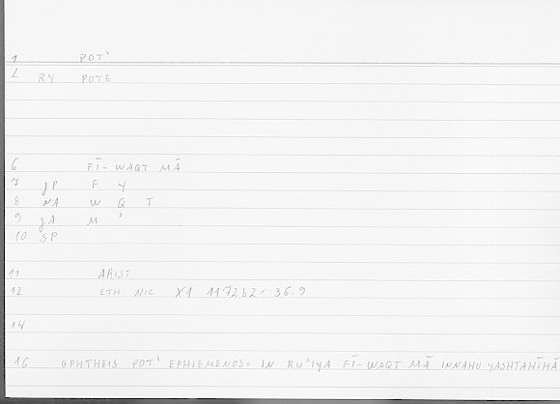 1 POT'
2 RY POTE
6 FĪ- WAQT MĀ
7 gP F Y
8 NA W Q T
9 gA M ʾ
10 SP
11 ARIST
12 ETH NIC X1 1172b2 = 36.9
14
16 OPHTHEIS POT' EPHIEMENOS: IN RUʾIYA FĪ- WAQT MĀ INNAHU YASHTAHĪHĀ